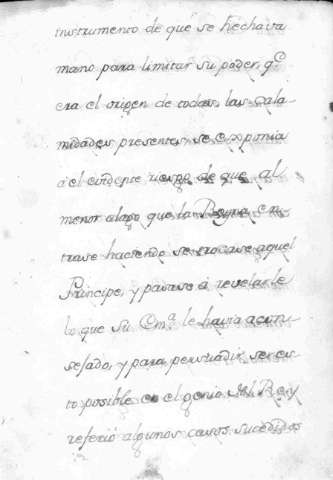 instrumento de que se hechava
mano para limitar su poder, q.e
era el origen de todas las cala
midades presentes, se exponia
a el evidente riesgo de que al
menor alago que la Reyna en
trase haciendo se trocase aquel
Principe, y pasase á revelarle
lo que su Em.a le havia acon
sejado, y para persuadir ser es
to posible en el genio del Rey
refirió algunos casos sucedidos